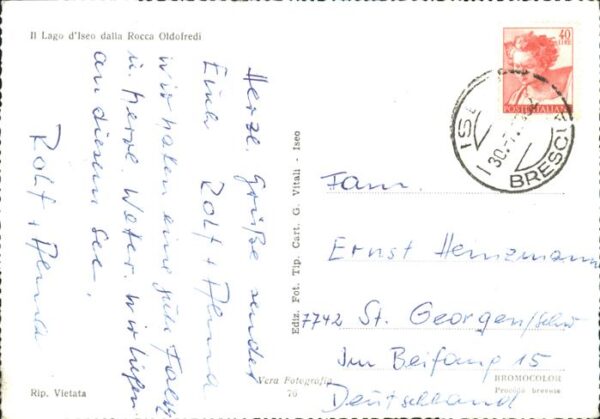 Il Lago d'Iseo dalla Rocca Oldofredi
Herzl. Grüße sendet
Euch Rolf +
wir haben eine gute
u. herrl. Wetter. Wir liegen
an diesem See.
Rolf +
Rip. Vietata
Ediz. Fot. Tip. Cart. G. Vitali - Iseo
Vera Fotografia
76
40
LIRE
POSTE ITALIANE
BRESCIA
30.7.
Fam.
Ernst Heinzmann
7742 St. Georgen/Schw
Im Beifang 15
Deutschland
BROMOCOLOR
Procedim. brevete